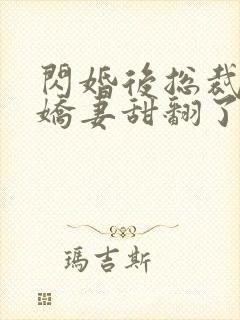 閃婚後總裁
嬌妻甜翻了
瑪吉斯